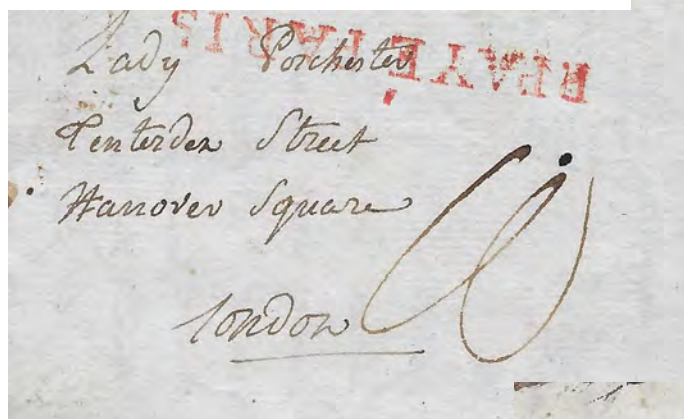 P.PAYÉ PARIS
Lady Porchester
Tenterden Street
Hanover Square
London
10